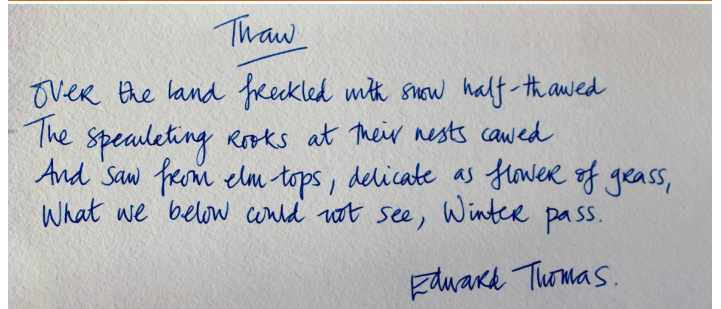 Thaw
Over the land freckled with snow half-thawed
The speculating rooks at their nests cawed
And saw from elm-tops, delicate as flower of grass,
What we below could not see, Winter pass.
Edward Thomas.